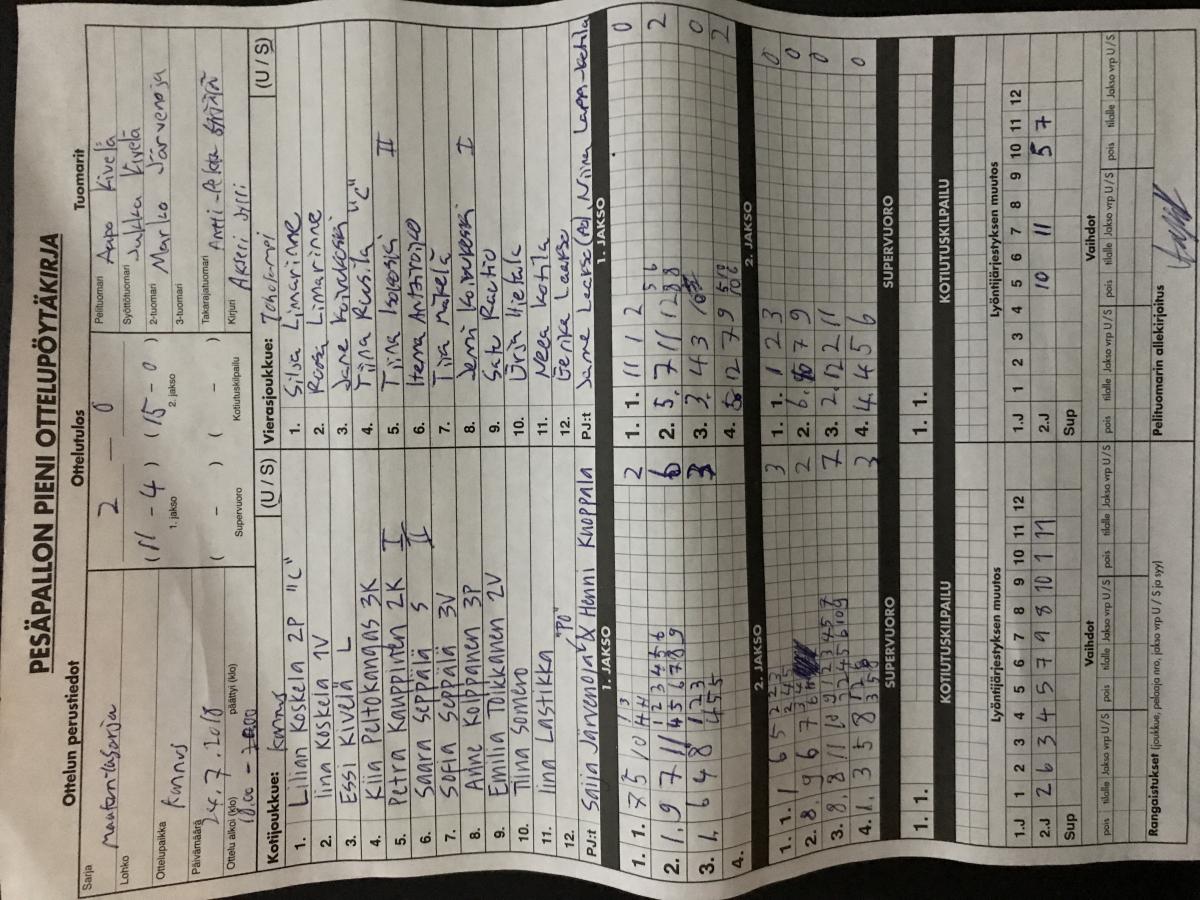 PESÄPALLON PIENI OTTELUPÖYTÄKIRJA
Ottelun perustiedot
Sarja
maakuntasarja
Lohko
Ottelupaikka
Kannus
Päivämäärä
24.7.2018
Ottelu alkoi (klo)
18.00 -
päättyi (klo)
Ottelutulos
2 — 0
(11 - 4) (15 - 0)
1. jakso 2. jakso
( - ) ( - )
Supervuoro Kotiutuskilpailu
Tuomarit
Pelituomari Aapo Kivelä
Syöttötuomari Jukka Kivelä
2-tuomari Marko Järvenoja
3-tuomari
Takarajatuomari Antti-Pekka
Kirjuri Akseri
Kotijoukkue: Kannus (U / S)
1. Lilian Koskela 2P "C"
2. Iina Koskela 1V
3. Essi Kivelä L
4. Kiia Peltokangas 3K
5. Petra Kauppinen 2K I
6. Saara Seppälä S II
7. Sofia Seppälä 3V
8. Anne Koppanen 3P
9. Emilia Tolkkanen 2V
10. Tiina Somero
11. Iina Lastikka
12. "PO"
PJ:t Saija Järvenoja Henni Knoppala
Vierasjoukkue: Toholampi (U / S)
1. Silja Limarinne
2. Roosa Limarinne
3. Janne Koivukoski
4. Tiina Ruusila "C"
5. Tiina Isokoski II
6. Henna Anttiroiko
7. Tiia Mäkelä
8. Jenni Koivukoski I
9. Satu Rautio
10. Hietala
11. Neea Kotila
12. Eerika Laakso
PJ:t Janne Laakso Niina Lappi-Kotila
1. JAKSO
1. 1. 7 5 10 2
2. 1. 9 7 11 6
3. 1. 6 4 8 3
4.
2. JAKSO
1. 1. 1 6 5 3
2. 8. 9 6 7 2
3. 8. 8 11 10 7
4. 1. 3 5 8 3
SUPERVUORO
1. 1.
KOTIUTUSKILPAILU
Lyöntijärjestyksen muutos
1.J 1 2 3 4 5 6 7 8 9 10 11 12
2.J 2 6 3 4 5 7 9 8 10 1 11
Sup
Vaihdot
pois tilalle Jakso vrp U / S pois tilalle Jakso vrp U / S pois tilalle Jakso vrp U / S
Rangaistukset (joukkue, pelaaja nro, jakso vrp U / S ja syy)
1. JAKSO
1. 1. 11 1 2 0
2. 5. 7 11 12 2
3. 3. 4 3 0
4. 12 7 9 2
2. JAKSO
1. 1. 1 2 3 0
2. 6. 7 9 0
3. 2. 12 2 11 0
4. 4. 4 5 6 0
SUPERVUORO
1. 1.
KOTIUTUSKILPAILU
Lyöntijärjestyksen muutos
1.J 1 2 3 4 5 6 7 8 9 10 11 12
2.J 10 11 5 7
Sup
Vaihdot
pois tilalle Jakso vrp U / S pois tilalle Jakso vrp U / S pois tilalle Jakso vrp U / S
Pelituomarin allekirjoitus